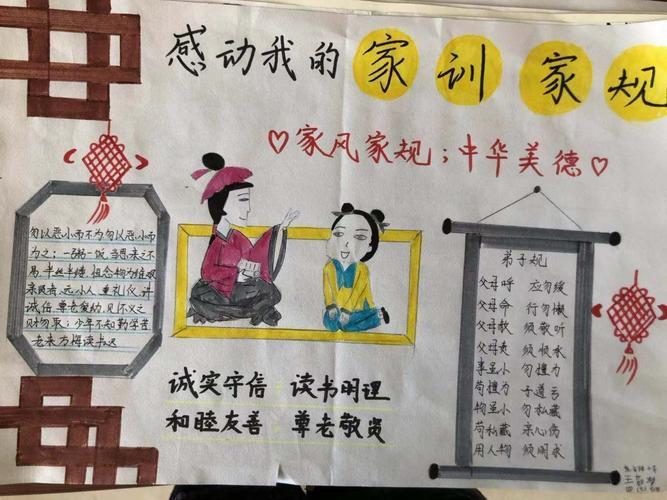 感动我的家训家规
家风家规;中华美德
勿以恶小而不为勿以恶小而
为之;一粥一饭,当思来之不
易,半丝半缕,恒念物力维艰
亲贤者,远小人,重礼仪,讲
诚信,尊老爱幼,见不义之
财勿取;少年不知勤学苦
老来方悔读书迟
诚实守信 读书明理
和睦友善 尊老敬贤
弟子规
父母呼 应勿缓
父母命 行勿懒
父母教 须敬听
父母责 须顺承
事虽小 勿擅为
苟擅为 子道亏
物虽小 勿私藏
苟私藏 亲心伤
用人物 须明求